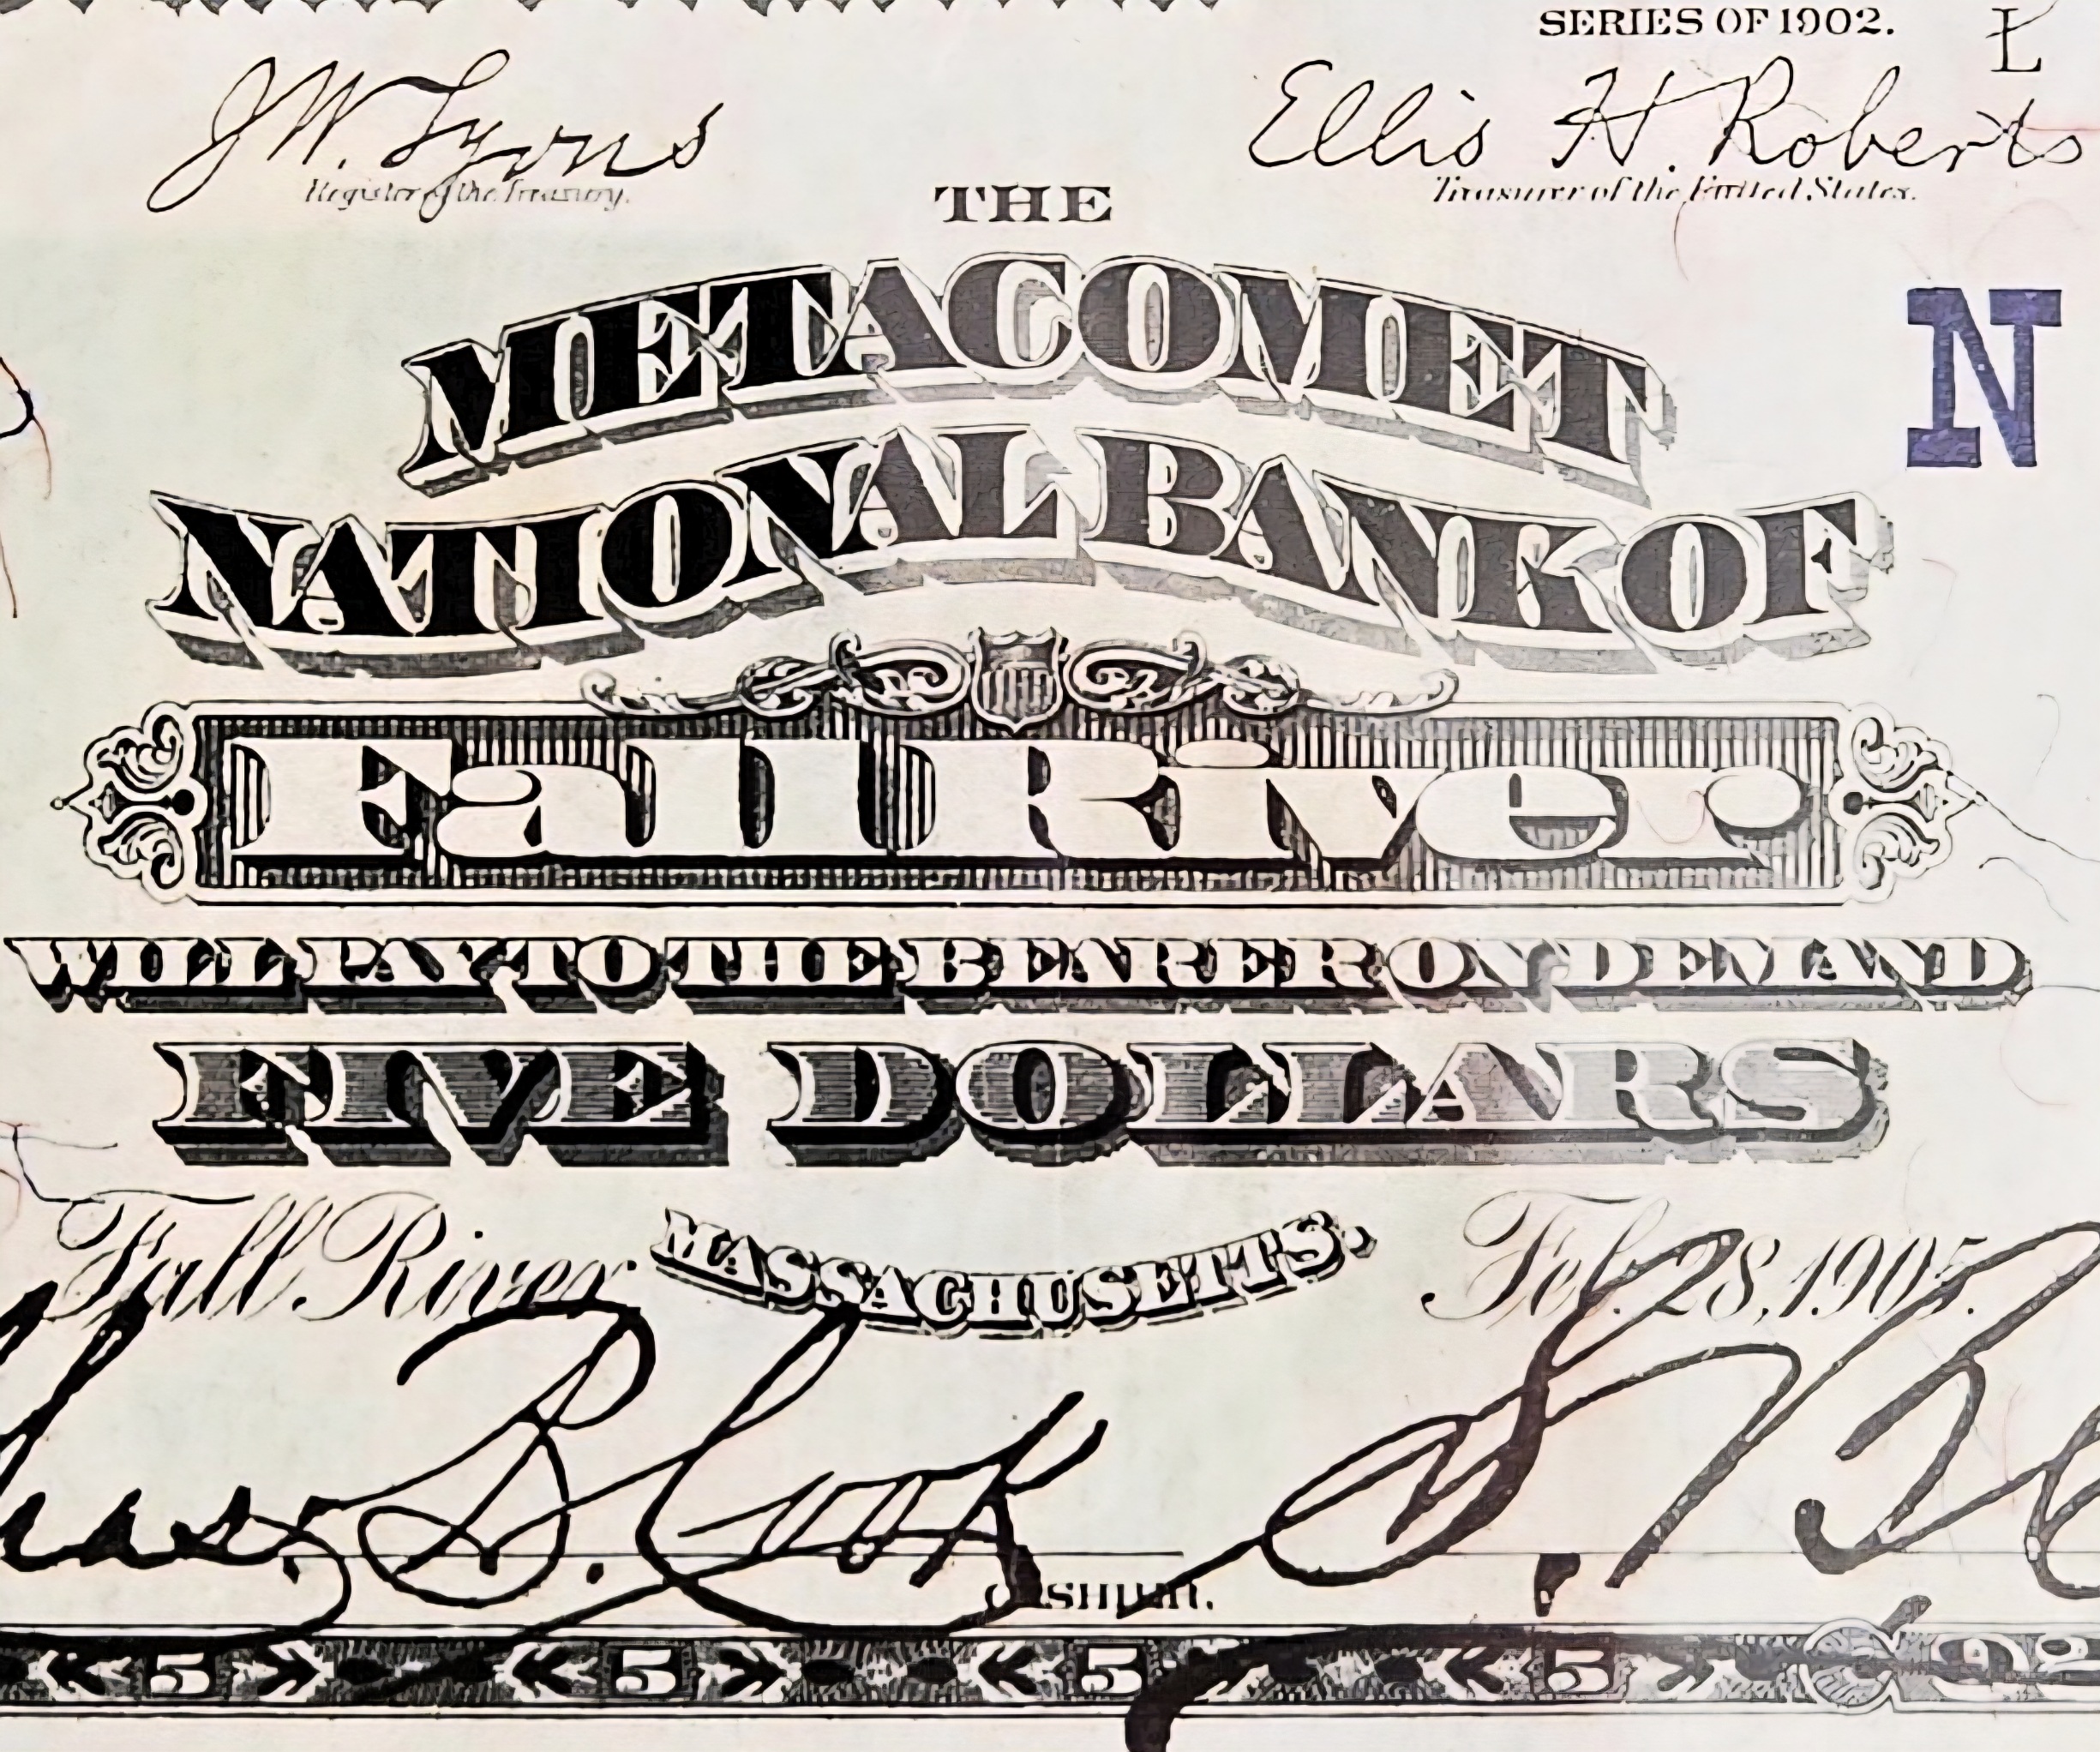 SERIES OF 1902.
L
J.W. Lyons
Ellis H. Roberts
Register of the Treasury.
Treasurer of the United States.
THE
METACOMET
N
NATIONAL BANK OF
Fall River
WILL PAY TO THE BEARER ON DEMAND
FIVE DOLLARS
Fall River
MASSACHUSETTS.
Feb. 28, 1905.
B. Cook
CASHIER.
5 5 5 5